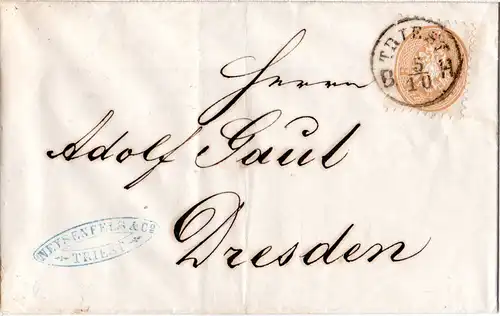 TRIEST
5/10
Herrn
Adolf Gaul
Dresden
& Co
TRIEST